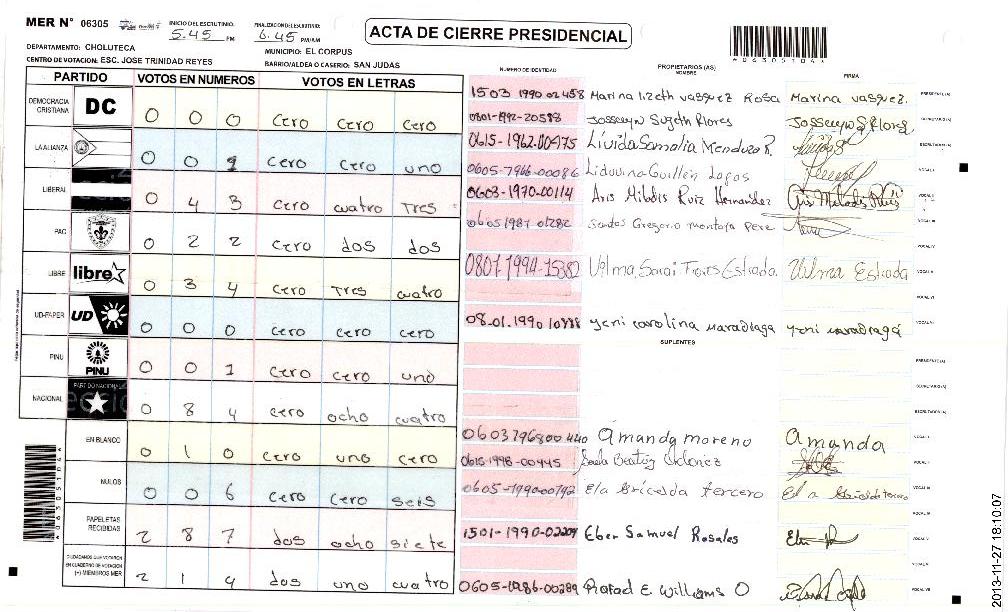 MER N° 06305
INICIO DEL ESCRUTINIO: 5.45 PM
FINALIZACION DEL ESCRUTINIO: 6.45 PM/AM
ACTA DE CIERRE PRESIDENCIAL
DEPARTAMENTO: CHOLUTECA
MUNICIPIO: EL CORPUS
CENTRO DE VOTACION: ESC. JOSE TRINIDAD REYES
BARRIO/ALDEA O CASERIO: SAN JUDAS
PARTIDO VOTOS EN NUMEROS VOTOS EN LETRAS
NUMERO DE IDENTIDAD PROPIETARIOS (AS) NOMBRE FIRMA
DEMOCRACIA CRISTIANA DC 0 0 0 cero cero cero
LA ALIANZA 0 0 1 cero cero uno
LIBERAL 0 4 3 cero cuatro tres
PAC 0 2 2 cero dos dos
LIBRE libre 0 3 4 cero tres cuatro
UD-FAPER UD 0 0 0 cero cero cero
PINU PINU 0 0 1 cero cero uno
NACIONAL PARTIDO NACIONAL 0 8 4 cero ocho cuatro
EN BLANCO 0 1 0 cero uno cero
NULOS 0 0 6 cero cero seis
PAPELETAS RECIBIDAS 2 8 7 dos ocho siete
CIUDADANOS QUE VOTARON EN CUADERNO DE VOTACION (+) MIEMBROS MER 2 1 4 dos uno cuatro
1503 1990 02458 Marina lizeth vasquez Rosa Marina vasquez.
0801-1992-20588 Josselyn Suyeth Flores Josselyn S Flores
0615-1962-00475 Livida Samalia Mendoza R.
0605-1966-00086 Liduvina Guillen Lagos
0603-1970-00114 Aris Miladis Ruiz Hernandez Aris Miladis Ruiz
0605 1987 01282 Santos Gregorio montoya
0801-1994-15382 Velma Sarai Estrada Velma Estrada
08.01.1990 10888 yeni carolina maradiaga yeni maradiaga
SUPLENTES
0603 1968 00 440 Amanda moreno Amanda
0615-1998-00445 Beatriz Ordoñez
0605-1990-00792 Ela Gricelda tercero
1501-1990-02209 Eber Samuel Rosales
0605-1986-00289 Rafael E. Williams O
2013-11-27 18:10:07